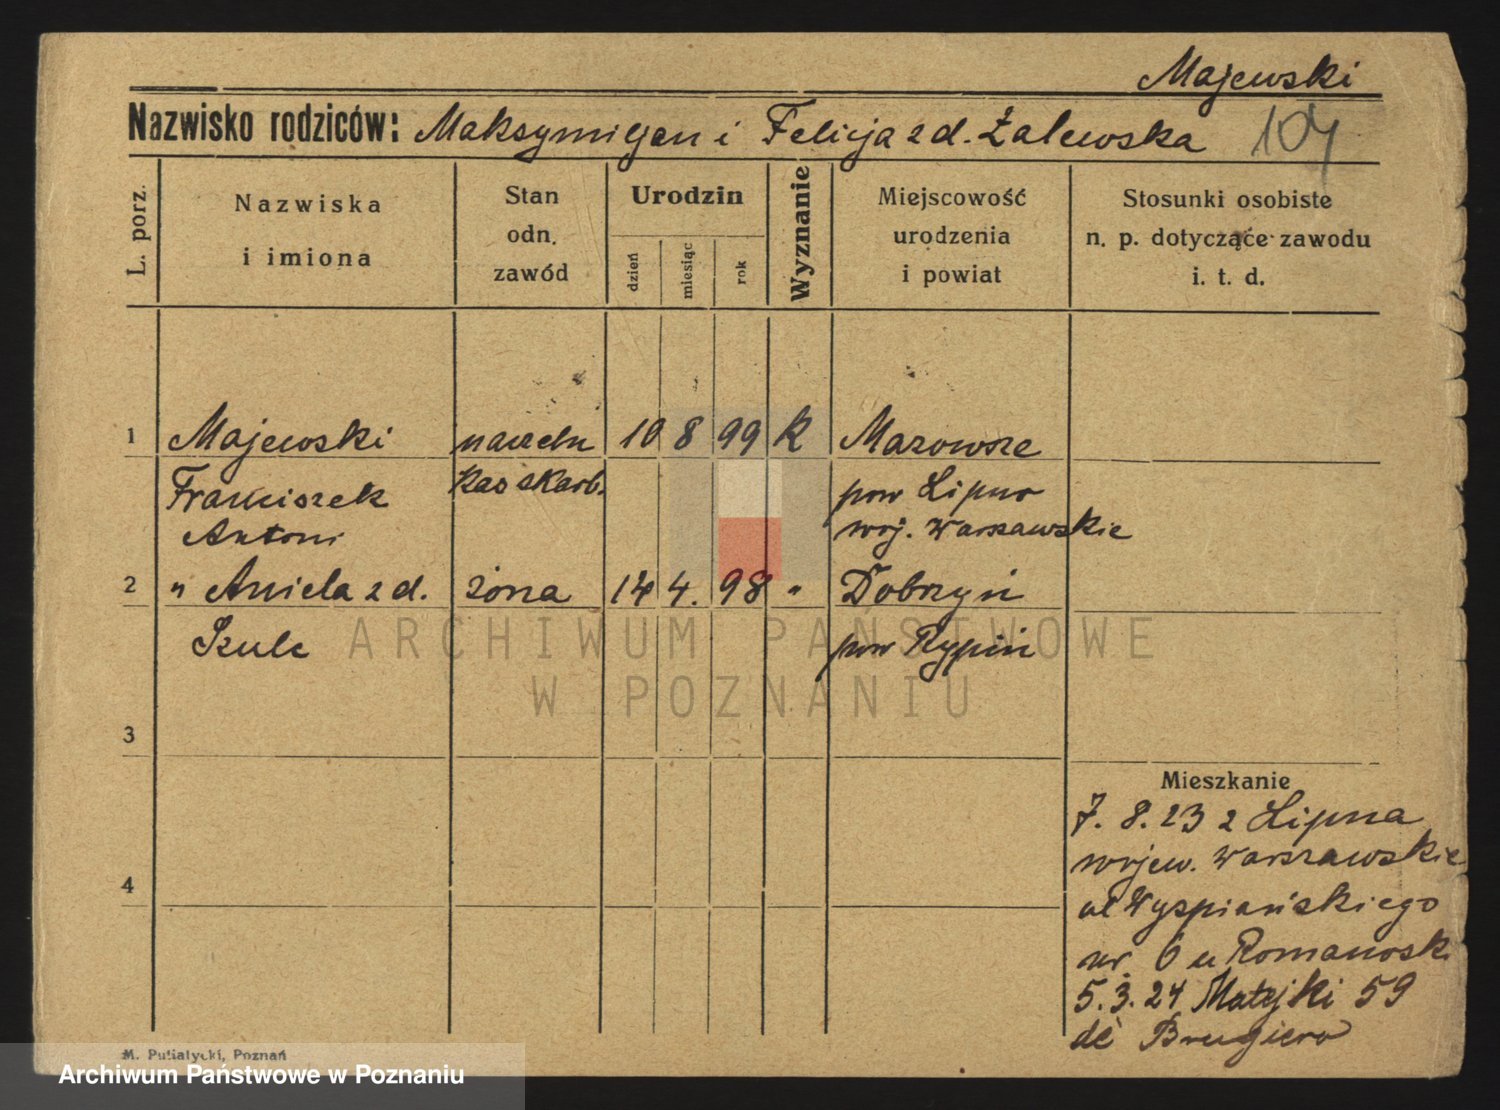 Majewski
Nazwisko rodziców: Maksymiljan i Felicja z d. Żalewska 104
L. porz.
Nazwiska
i imiona
Stan
odn.
zawód
Urodzin
dzień
miesiąc
rok
Wyznanie
Miejscowość
urodzenia
i powiat
Stosunki osobiste
n. p. dotyczące zawodu
i. t. d.
1 Majewski naczeln 10 8 99 k Mazowsze
Franciszek kas skarb. pow Lipno
Antoni woj. Warszawskie
2 " Aniela z d. żona 14 4. 98 " Dobrzyń
Szulc pow Rypin
ARCHIWUM PAŃSTWOWE
W POZNANIU
3
Mieszkanie
7. 8. 23 z Lipna
wojew. warszawskie
4
ul Wyspiańskiego
nr. 6 u Romanowsk
5. 3. 24 Matejki 59
de Brugiero
M. Putiatycki, Poznań
Archiwum Państwowe w Poznaniu